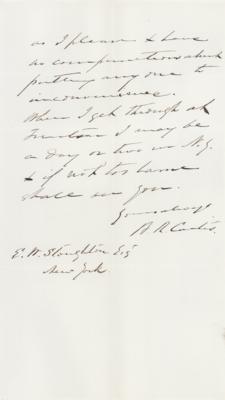 as I please & have
no compunctions about
putting any one to
inconvenience.
When I get through at
Trenton I may be
a day or two in N.Y.
& if not too lame
shall see you.
Yours always
B R Curtis.
E. W. Stoughton Esq
New York.